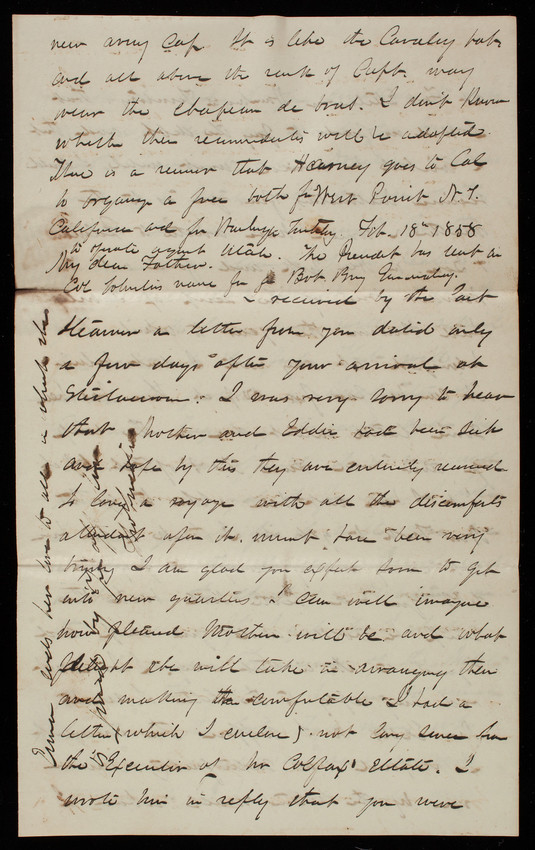 new army cap. It is like the Cavalry hat
and all above the rank of Capt. may
wear the chapeau de bras. I don't know
whether their recommendations will be adopted.
There is a rumor that Harney goes to Cal
to organize a force both fr West Point N.Y.
California and fr Wash. Territory Feb. 18th 1858
to operate against Utah. The President has sent in
My dear Father.
Col Johnston's name for Bvt Brig Generalcy.
I received by the last
steamer a letter from you dated only
a few days after your arrival at
Steilacoom. I was very sorry to hear
that Mother and Eddie had been sick
and hope by this they are entirely recovered
So long a voyage with all the discomforts
attendant upon it, must have been very
trying. I am glad you expect soon to get
into new quarters. I can well imagine
how pleased Mother will be and what
delight she will take in arranging them
and making them comfortable. I had a
letter (which I enclose) not long since from
the Executor of Mr Colfax' Estate. I
wrote him in reply that you were
Emma sends her love to all in which she
is joined by